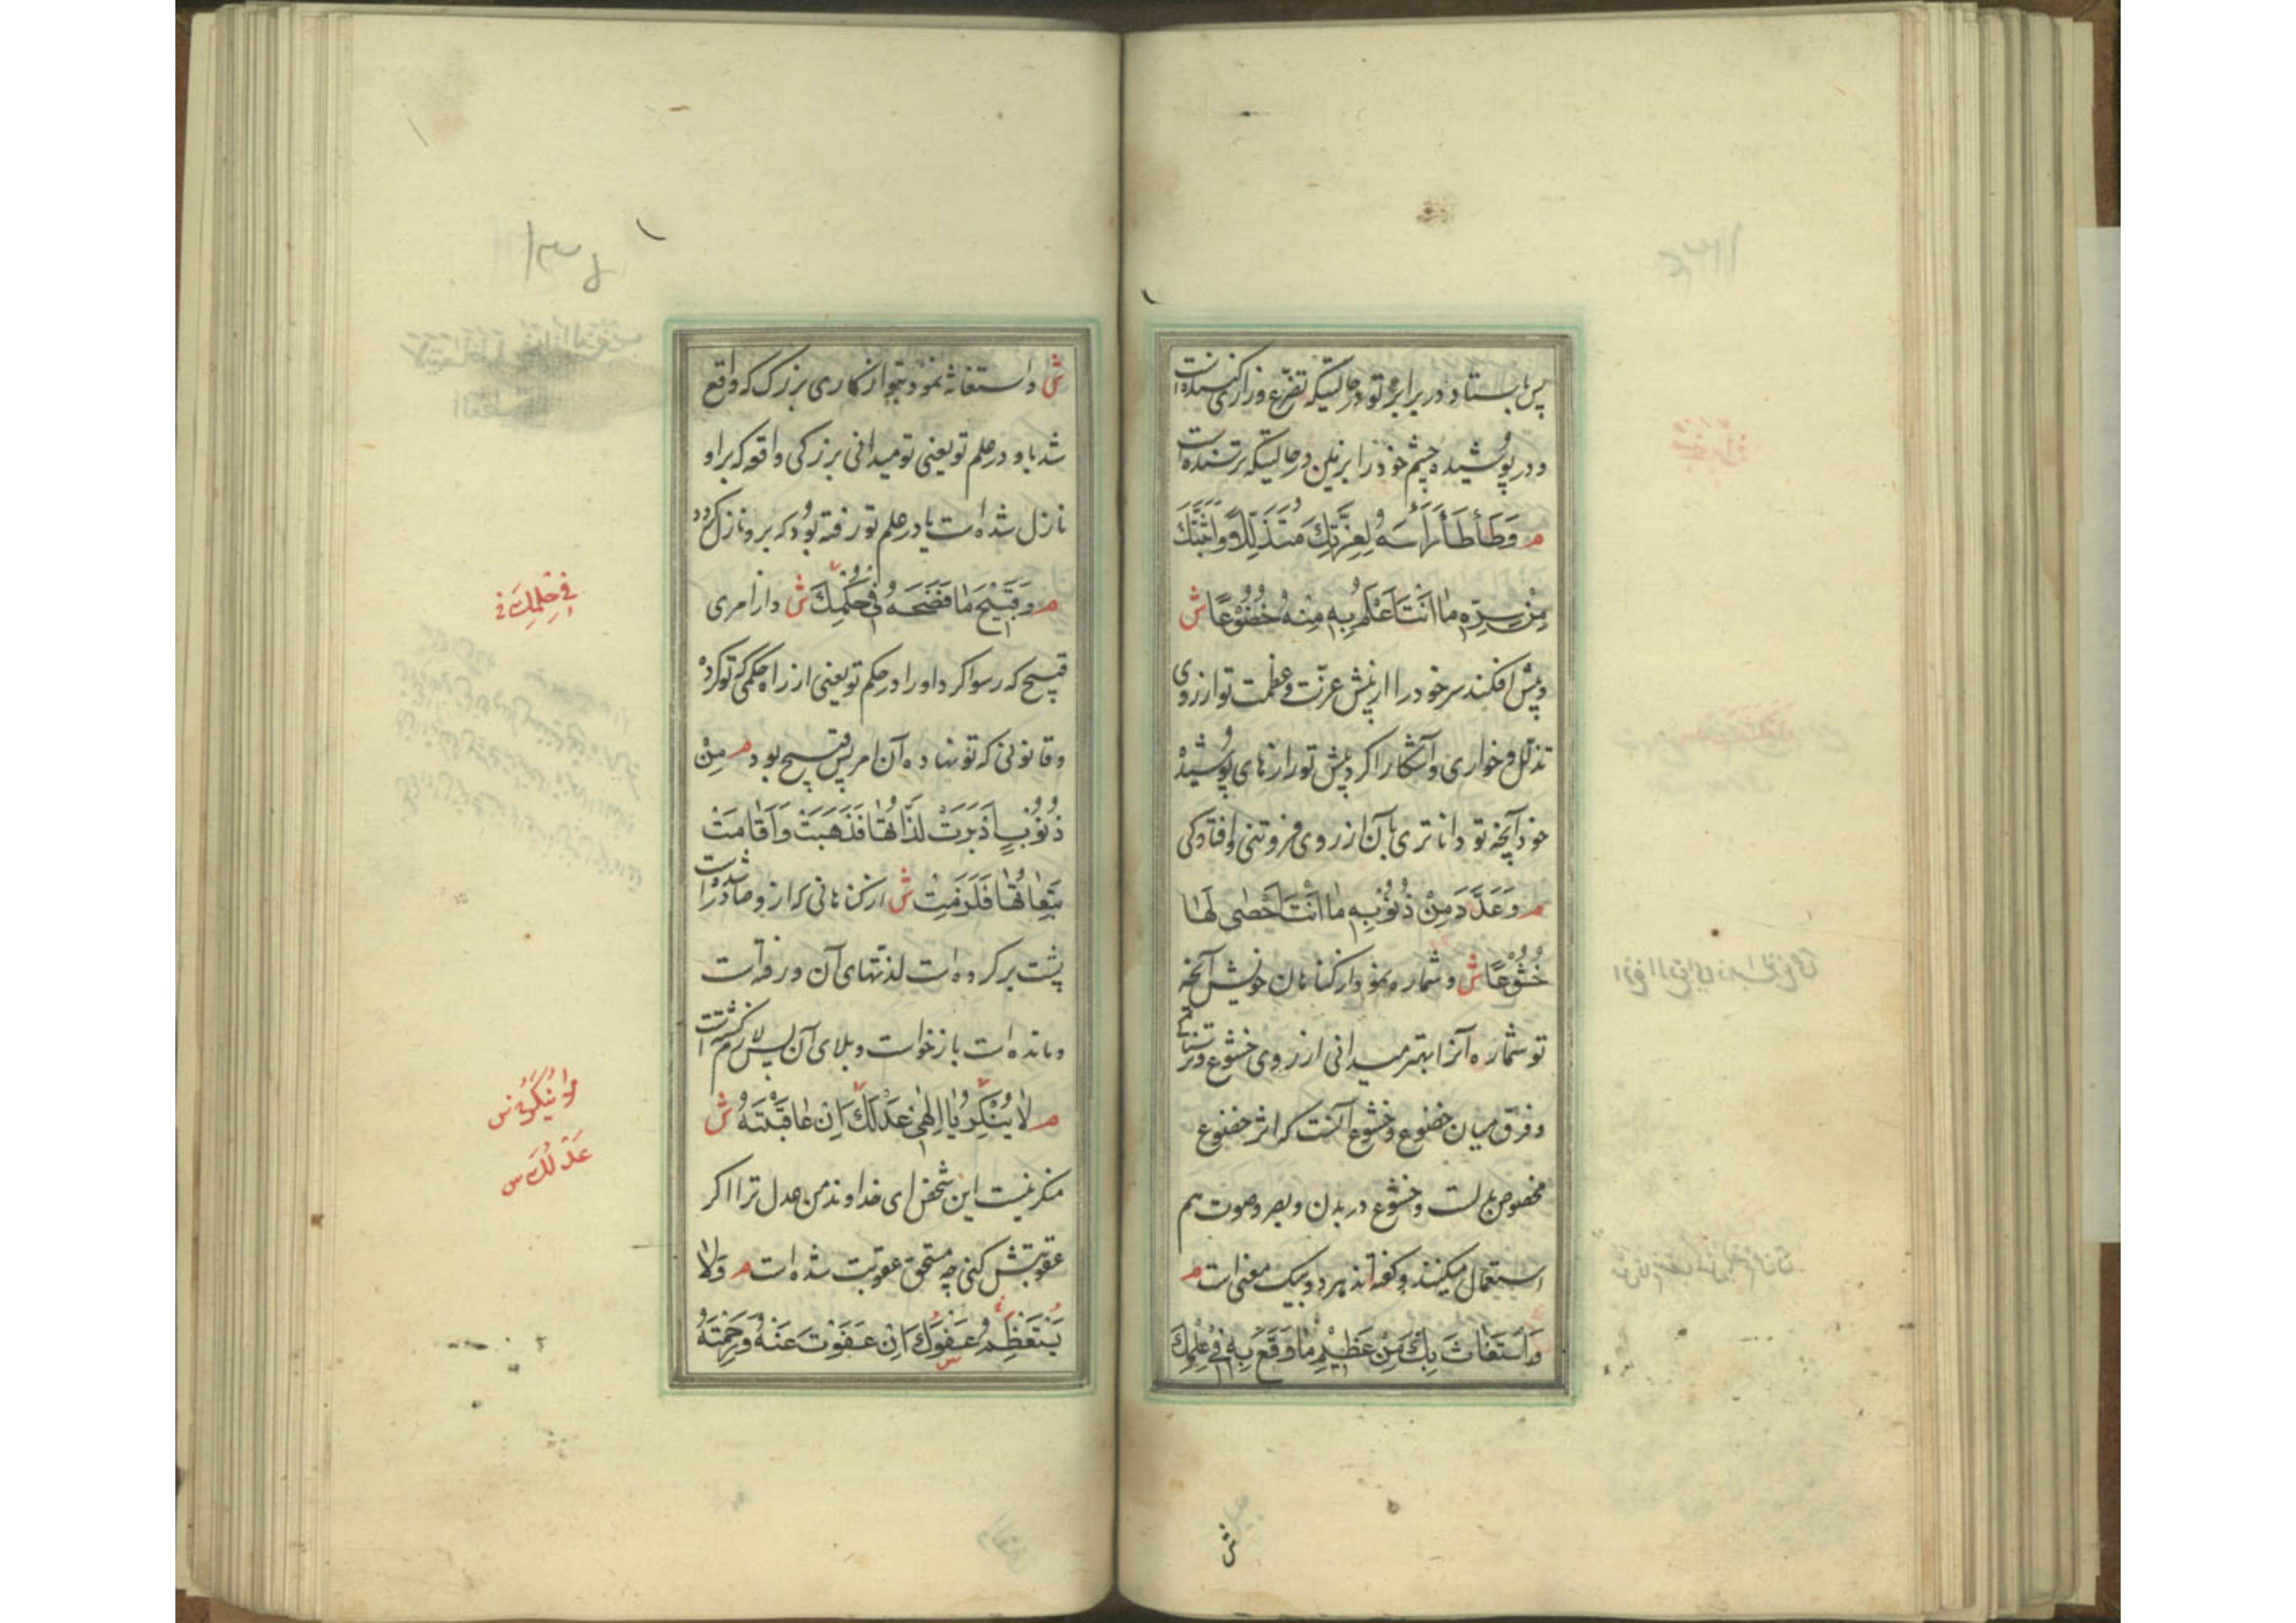 پس بایستاد در برابر تو در حالتیکه تضرع و زاری کننده است
و در پوشیده چشم خود را بر زمین در حالتیکه ترسنده است
م وَطَأْطَأَ رَأْسَهُ لِعِزَّتِكَ مُتَذَلِّلًا وَاَبَثَّكَ
مِنْ سِرِّهِ مٰا اَنْتَ اَعْلَمُ بِهِ مِنْهُ خُضُوْعًا ش
و پیش افکند سر خود را از پیش عزت و عظمت تو از روی
تذلل و خواری و آشکارا کرد پیش تو رازهای پوشیده
خود آنچه تو داناتری بآن از روی فروتنی و افتادگی
م وَعَدَّدَ مِنْ ذُنُوْبِهِ مٰا اَنْتَ اَحْصٰى لَهٰا
خُشُوْعًا ش و شماره نمود از گناهان خویش آنچه
تو شماره آنرا بهتر میدانی از روی خشوع و
و فرق میان خضوع و خشوع آنست که اثر خضوع
مخصوص بدنست و خشوع در بدن و بصر و صوت هم
استعمال میکنند و گفته‌اند هر دو بیک معنی است م
وَاسْتَغٰاثَ بِكَ مِنْ عَظِيْمِ مٰا وَقَعَ بِهِ فِيْ عِلْمِكَ
ش
ش و استغاثه نمود بتو از کاری بزرک که واقع
شد باو در علم تو یعنی تو میدانی بزرکی واقعه که بر او
نازل شده است یا در علم تو رفته بود که برو نازل کردد
م وَقَبِيْحِ مٰا فَضَحَهُ فِيْ حُكْمِكَ ش و از امری
قبیح که رسوا کرد او را در حکم تو یعنی از راه حکمی که تو کرده
و قانونی که تو نهاده آن امر بس قبیح بود م مِنْ
ذُنُوْبٍ اَدْبَرَتْ لَذّٰاتُهٰا فَذَهَبَتْ وَاَقٰامَتْ
تَبِعٰاتُهٰا فَلَزِمَتْ ش از گناهانی که ازو صادر شده است
پشت برکرده است لذتهای آن و رفته است
و مانده است بازخواست و بلای آن پس لازم گشته است
م لٰا يُنْكِرُ يٰا اِلٰهِيْ عَدْلَكَ اِنْ عٰاقَبْتَهُ ش
منکر نیست این شخص ای خداوند من عدل ترا اکر
عقوبتش کنی چه مستحق عقوبت شده است م وَلٰا
يَسْتَعْظِمُ عَفْوَكَ اِنْ عَفَوْتَ عَنْهُ وَرَحِمْتَهُ
فِيْ حِلْمِكَ
عَدْلُكَ س